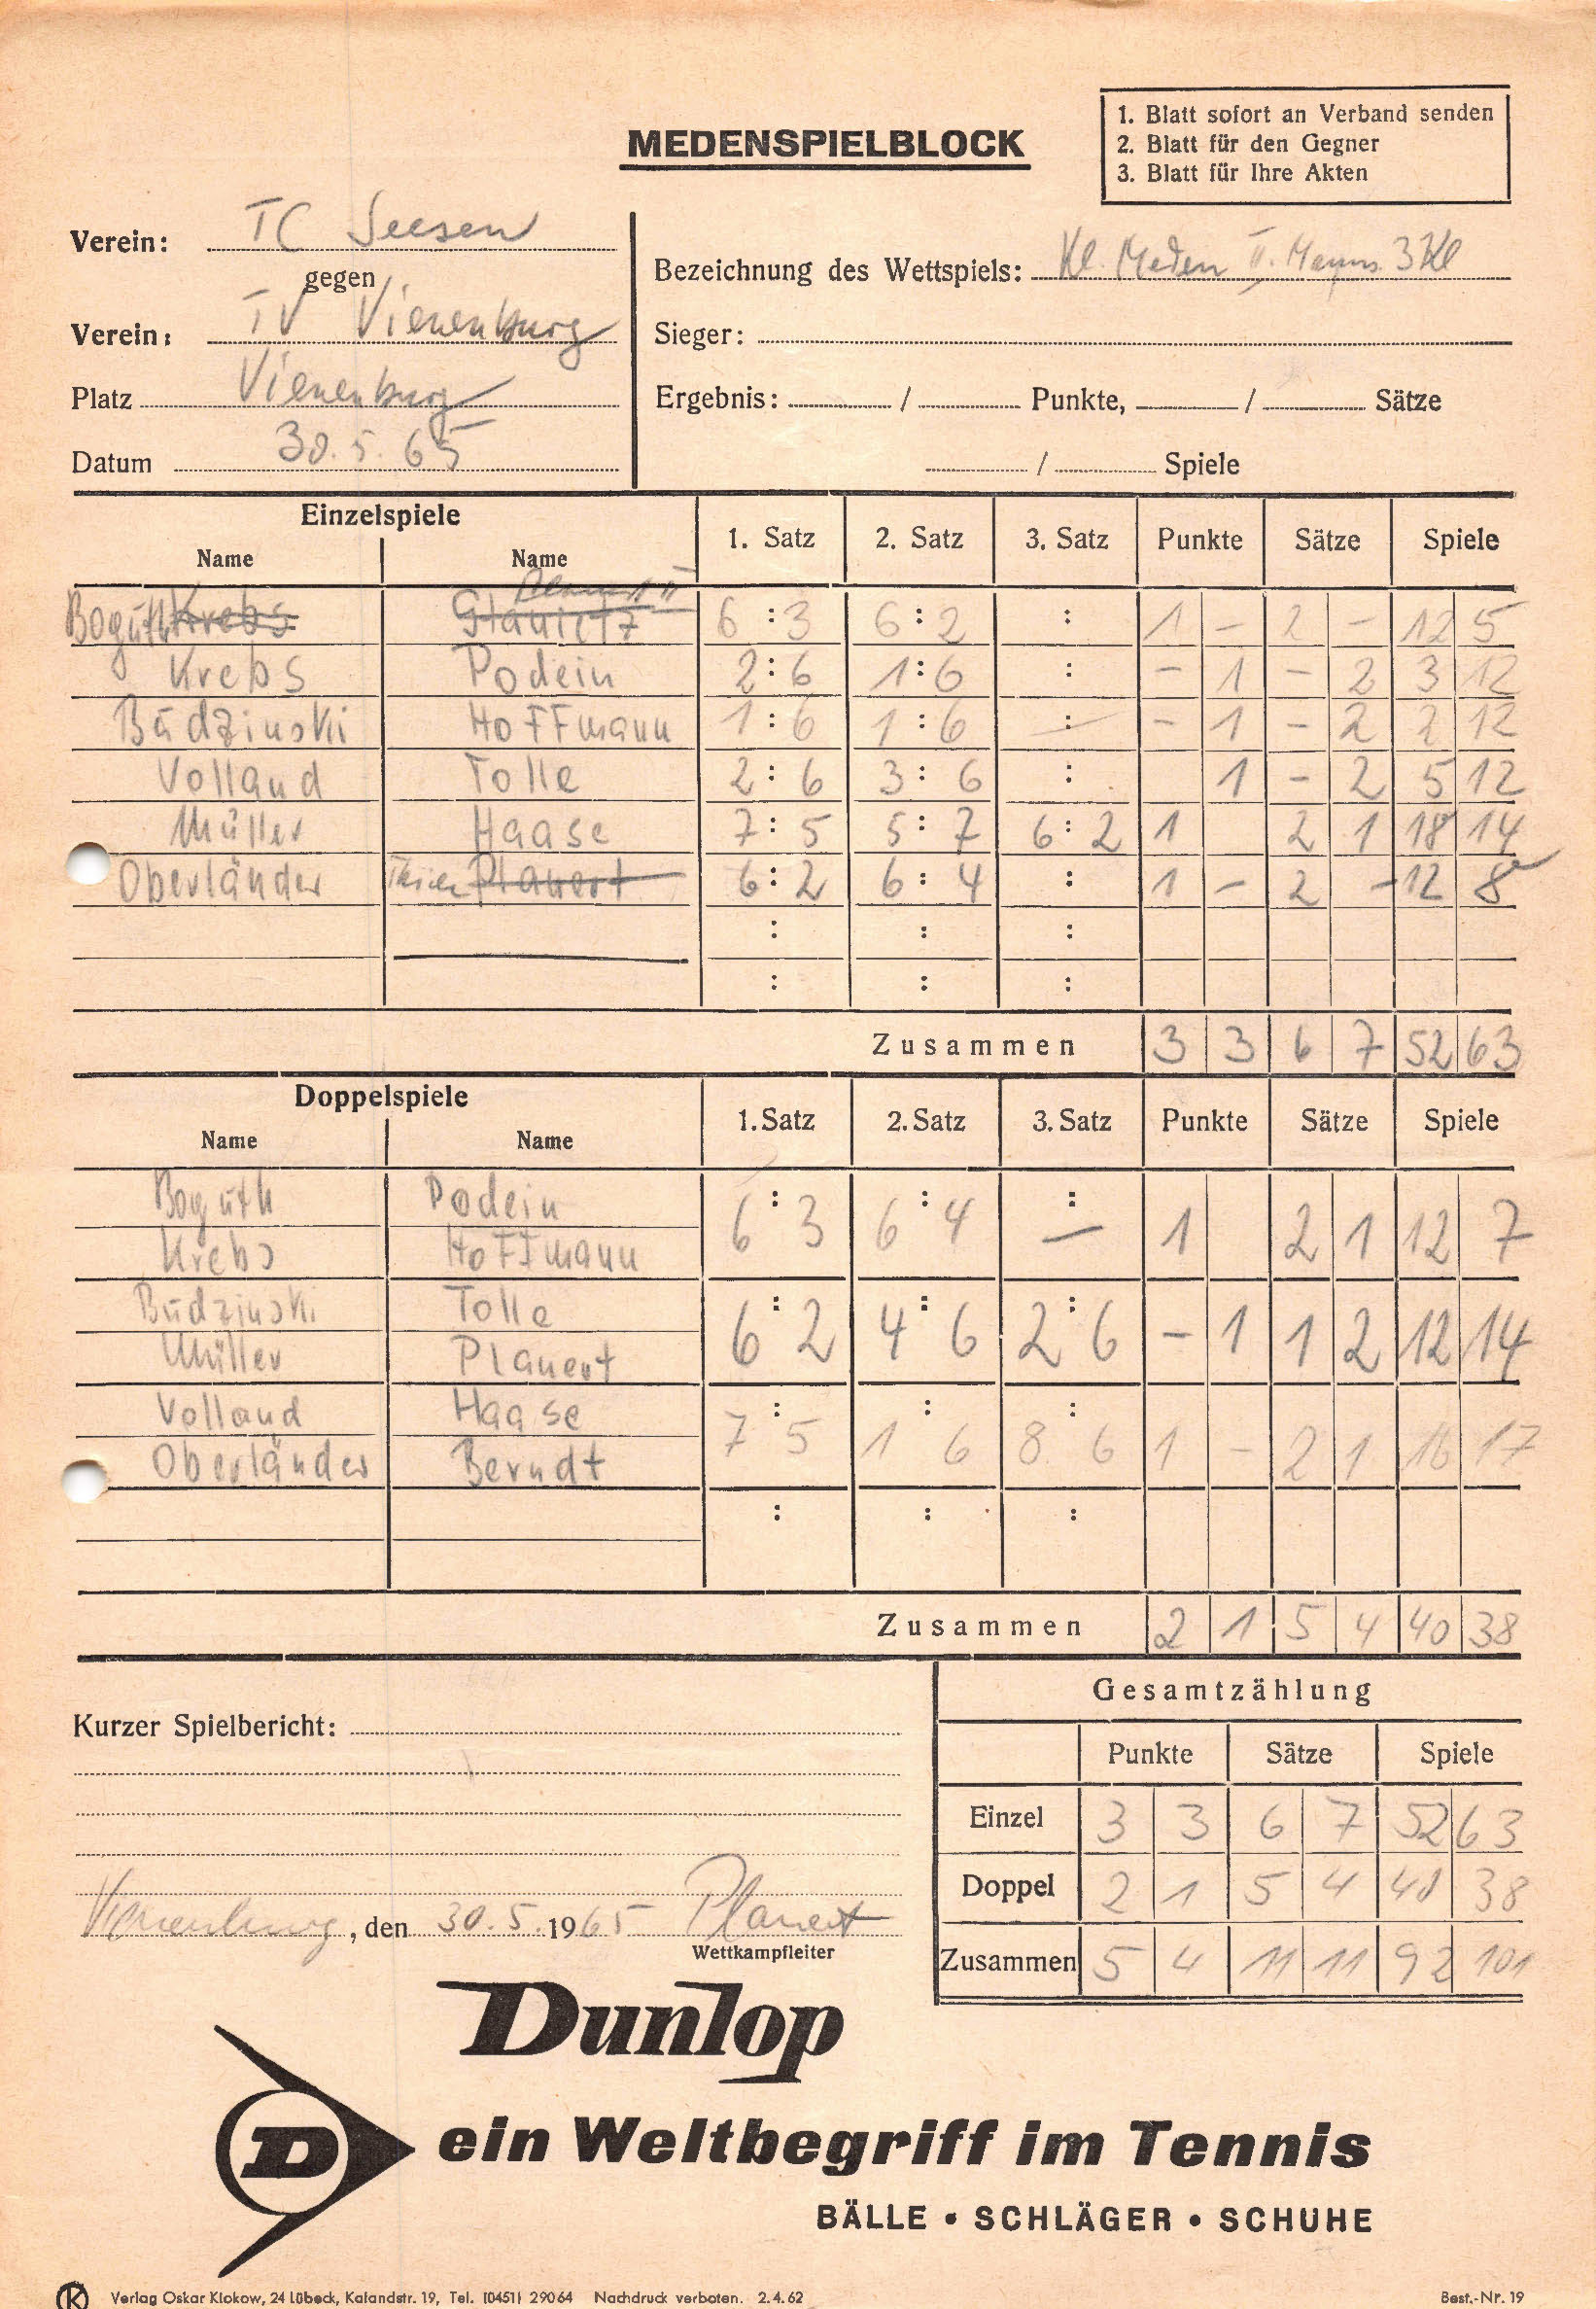 1. Blatt sofort an Verband senden
2. Blatt für den Gegner
3. Blatt für Ihre Akten
MEDENSPIELBLOCK
Verein: TC Seesen
gegen
Verein: TV Vienenburg
Platz Vienenburg
Datum 30.5.65
Bezeichnung des Wettspiels: Kl. Meden II. Mann. 3 Kl
Sieger:
Ergebnis: / Punkte, / Sätze
/ Spiele
Einzelspiele 1. Satz 2. Satz 3. Satz Punkte Sätze Spiele
Name Name
Boguth Krebs 6:3 6:2 : 1 – 2 – 12 5
Krebs Podein 2:6 1:6 : – 1 – 2 3 12
Budzinski Hoffmann 1:6 1:6 : – 1 – 2 2 12
Volland Tolle 2:6 3:6 : 1 – 2 5 12
Müller Haase 7:5 5:7 6:2 1 2 1 18 14
Oberländer Planert 6:2 6:4 : 1 – 2 – 12 8
: : :
: : :
Zusammen 3 3 6 7 52 63
Doppelspiele 1. Satz 2. Satz 3. Satz Punkte Sätze Spiele
Name Name
Boguth Podein 6:3 6:4 : – 1 2 1 12 7
Krebs Hoffmann
Budzinski Tolle 6:2 4:6 2:6 – 1 1 2 12 14
Müller Planert
Volland Haase 7:5 1:6 8:6 1 – 2 1 16 17
Oberländer Berndt
: : :
Zusammen 2 1 5 4 40 38
Gesamtzählung
Punkte Sätze Spiele
Einzel 3 3 6 7 52 63
Doppel 2 1 5 4 40 38
Zusammen 5 4 11 11 92 101
Kurzer Spielbericht:
Vienenburg, den 30.5.1965 Planert
Wettkampfleiter
Dunlop
D
ein Weltbegriff im Tennis
BÄLLE • SCHLÄGER • SCHUHE
K Verlag Oskar Klokow, 24 Lübeck, Kalandstr. 19, Tel. (0451) 29064 Nachdruck verboten. 2.4.62 Best.-Nr. 19